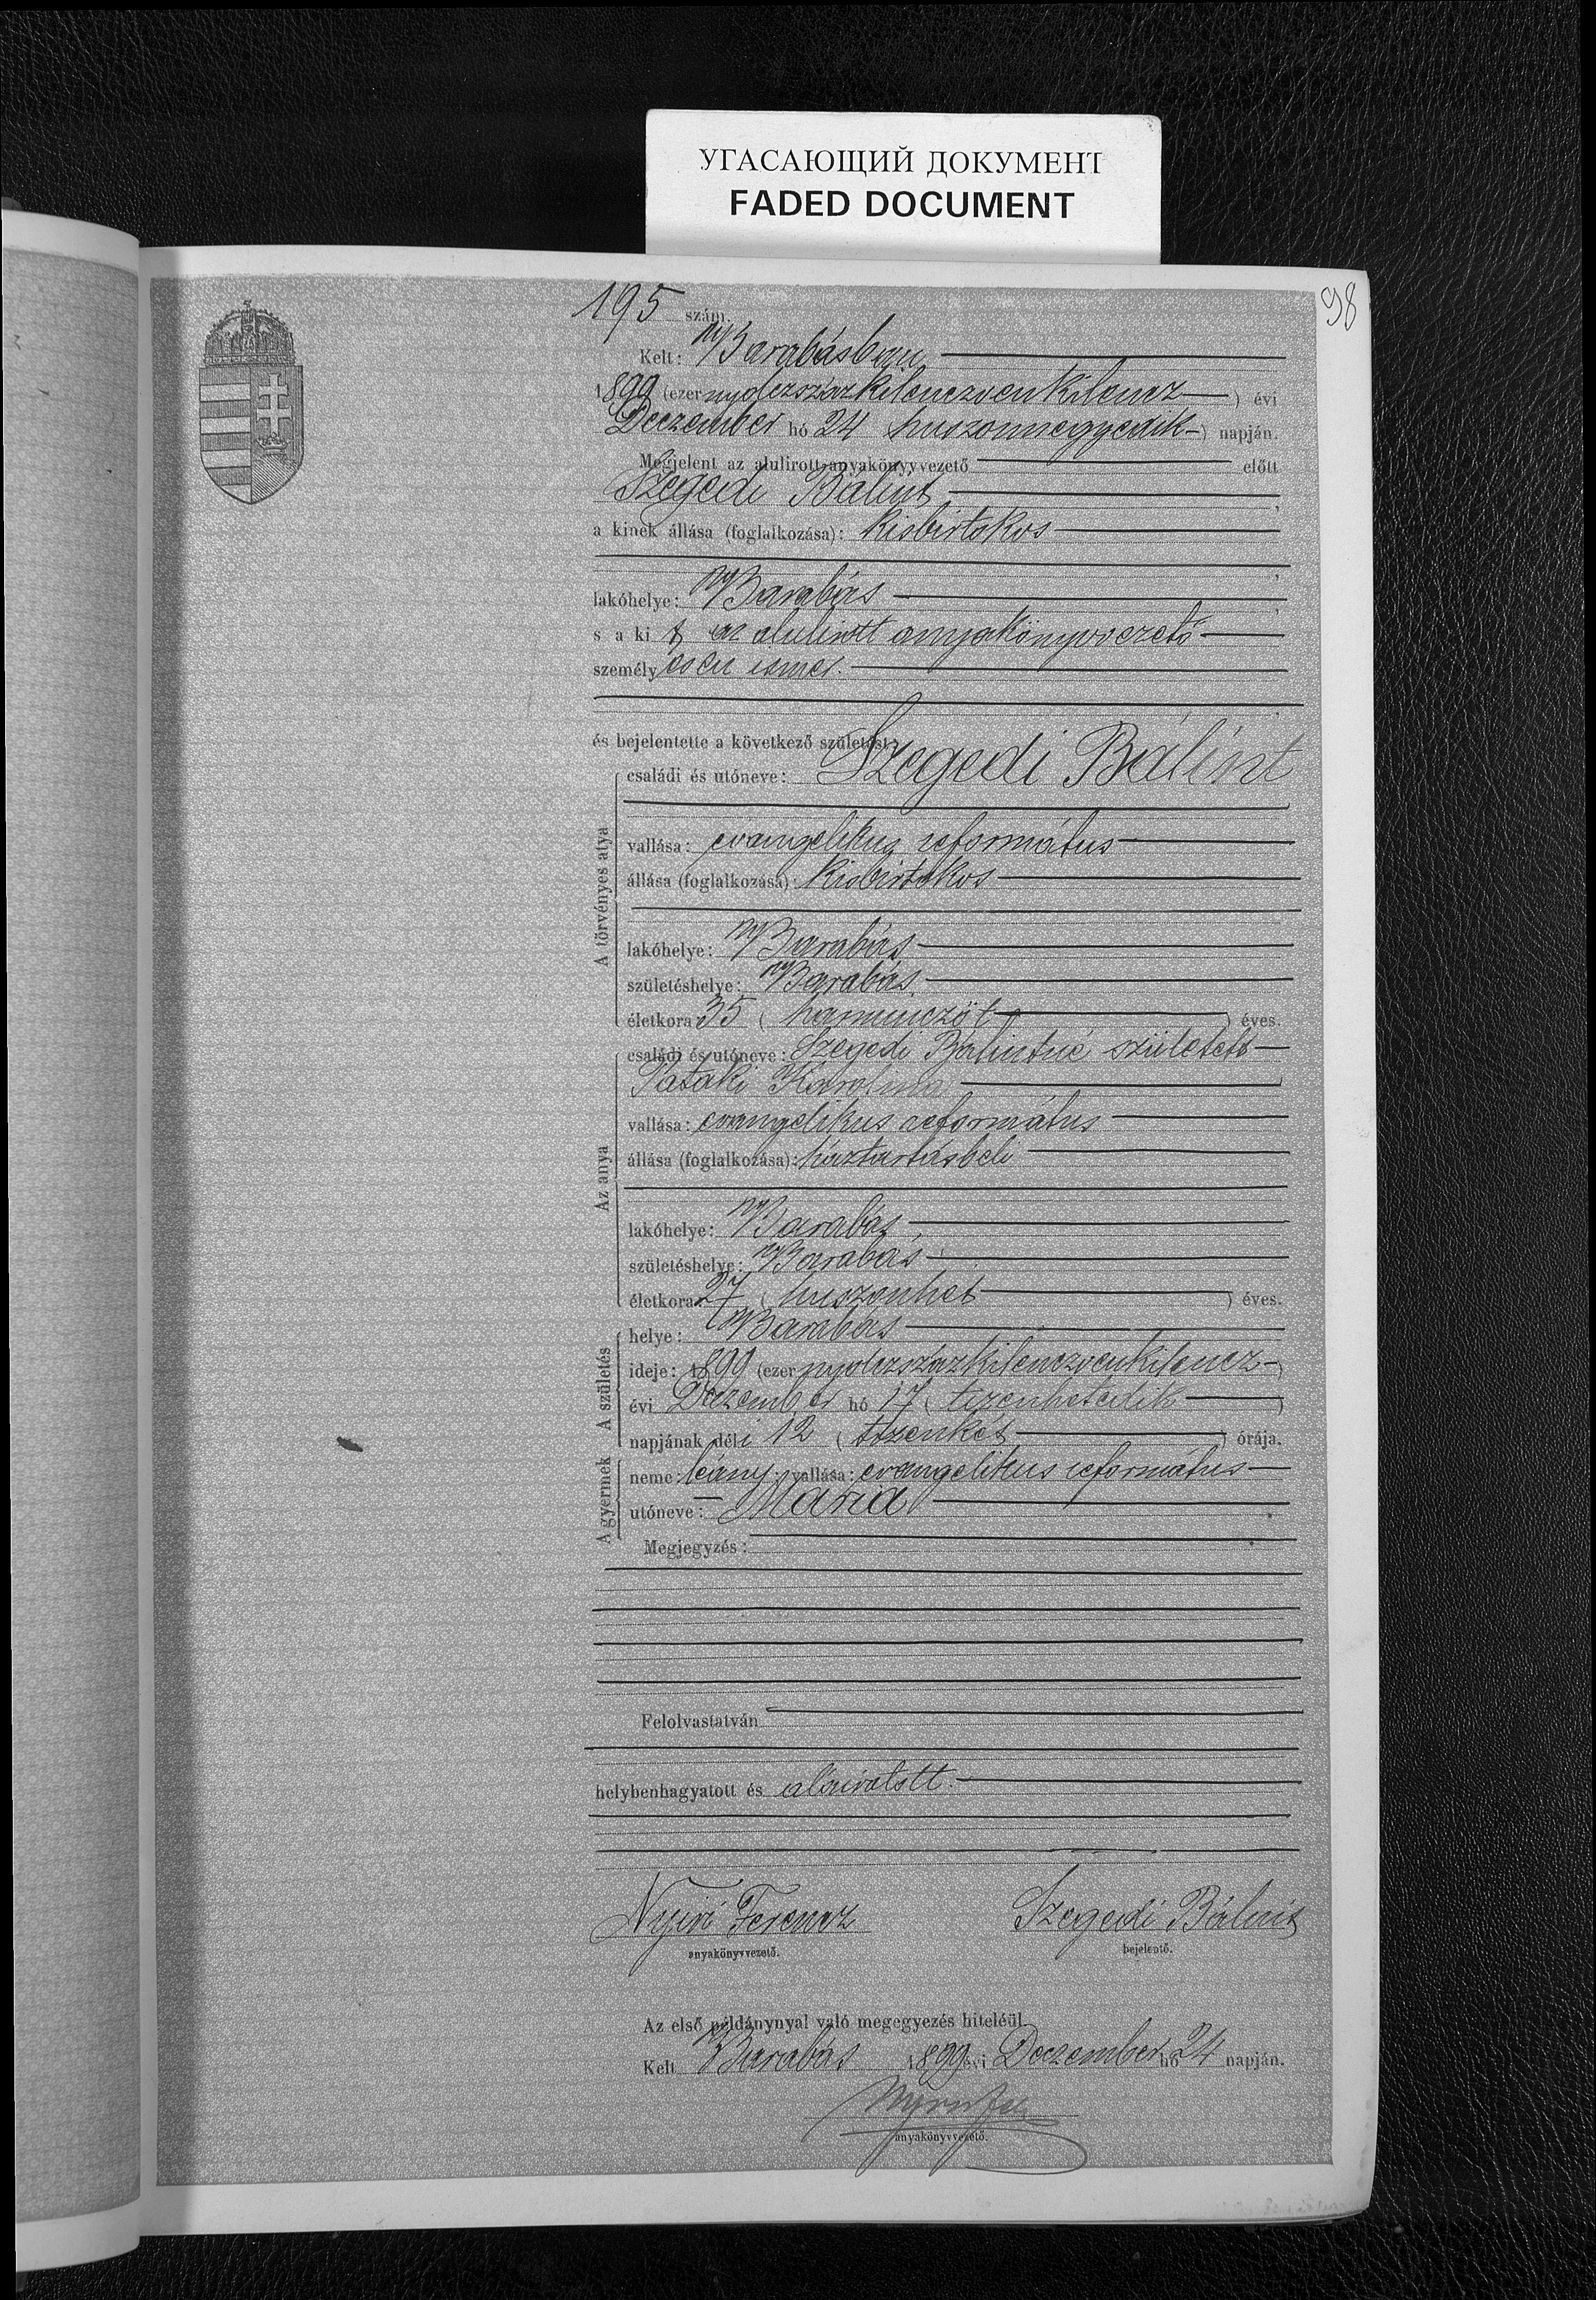 УГАСАЮЩИЙ ДОКУМЕНТ
FADED DOCUMENT
98
195 szám.
Kelt: Barabásban
1899 (ezernyolczszázkilenczvenkilencz) évi
Deczember hó 24 huszonnegyedik) napján.
Megjelent az alulirott anyakönyvvezető előtt
Szegedi Bálint,
a kinek állása (foglalkozása): kisbirtokos
lakóhelye: Barabás
s a kit az alulirott anyakönyvvezető
személyesen ismer.
és bejelentette a következő születést:
A törvényes atya
családi és utóneve: Szegedi Bálint
vallása: evangelikus református
állása (foglalkozása): kisbirtokos
lakóhelye: Barabás
születéshelye: Barabás
életkora: 35 (harminczöt) éves.
Az anya
családi és utóneve: Szegedi Bálintné született
Pataki Karolina
vallása: evangelikus református
állása (foglalkozása): háztartásbeli
lakóhelye: Barabás
születéshelye: Barabás
életkora: 27 (huszonhet) éves.
A születés
helye: Barabás
ideje: 1899 (ezernyolczszázkilenczvenkilencz)
évi Deczember hó 17 (tizenhetedik)
napjának déli 12 (tizenkét) órája.
A gyermek
neme: leány; vallása: evangelikus református
utóneve: Mária
Megjegyzés:
Felolvastatván
helybenhagyatott és aláiratott.
Nyiri Ferencz Szegedi Bálint
anyakönyvvezető. bejelentő.
Az első példánynyal való megegyezés hiteléül.
Kelt Barabás 1899 évi Deczember hó 24 napján.
anyakönyvvezető.